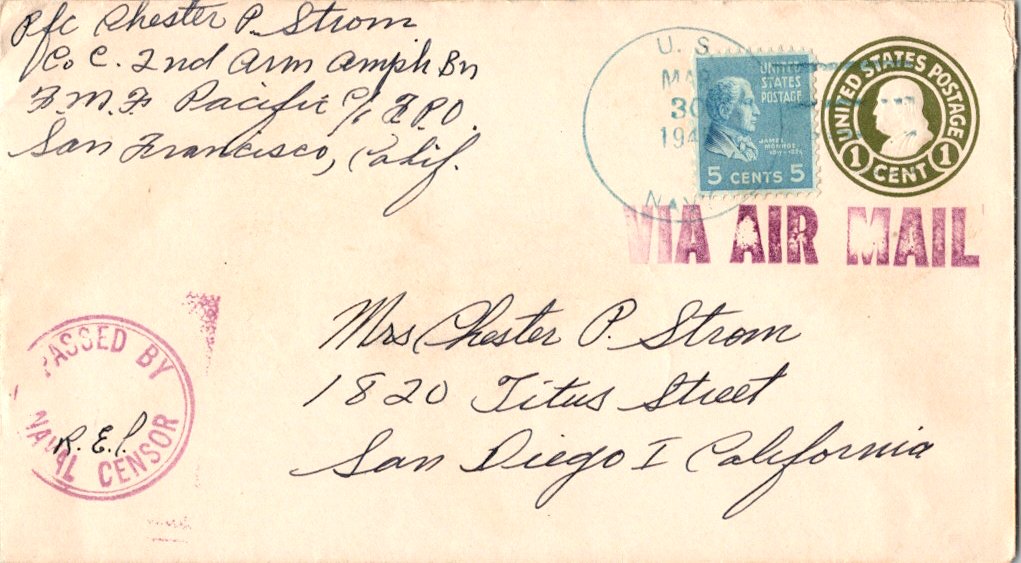 Pfc Chester P. Strom
Co C. 2nd Arm Amph Bn
F.M.F. Pacific c/o F.P.O.
San Francisco, Calif.
U. S.
MAR
30
194
NAVY
UNITED
STATES
POSTAGE
JAMES
MONROE
5 CENTS 5
UNITED STATES POSTAGE
1 CENT 1
VIA AIR MAIL
Mrs Chester P. Strom
1820 Titus Street
San Diego I California
PASSED BY
R. E. P.
NAVAL CENSOR